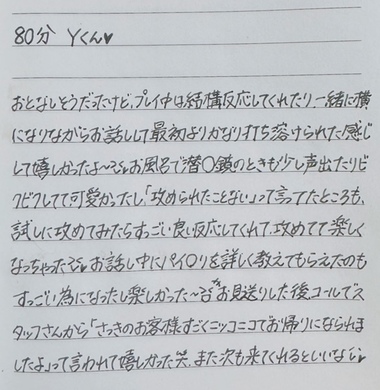 80分 Yくん♥
おとなしそうだったけど、プレイ中は結構反応してくれたり、一緒に横
になりながらお話しして最初よりかなり打ち溶けられた感じ
して嬉しかったよ〜お風呂で潜〇鏡のときも少し声出たりビ
クビクしてて可愛かったし「攻められたことない」って言ってたところも、
試しに攻めてみたらすっごい良い反応してくれて、攻めてて楽しく
なっちゃったお話し中にパイ〇リを詳しく教えてもらえたのも
すっごい為になったし楽しかった〜お見送りした後コールでス
タッフさんから「さっきのお客様すごくニッコニコでお帰りになられま
したよ」って言われて嬉しかった笑、また次も来てくれるといいな